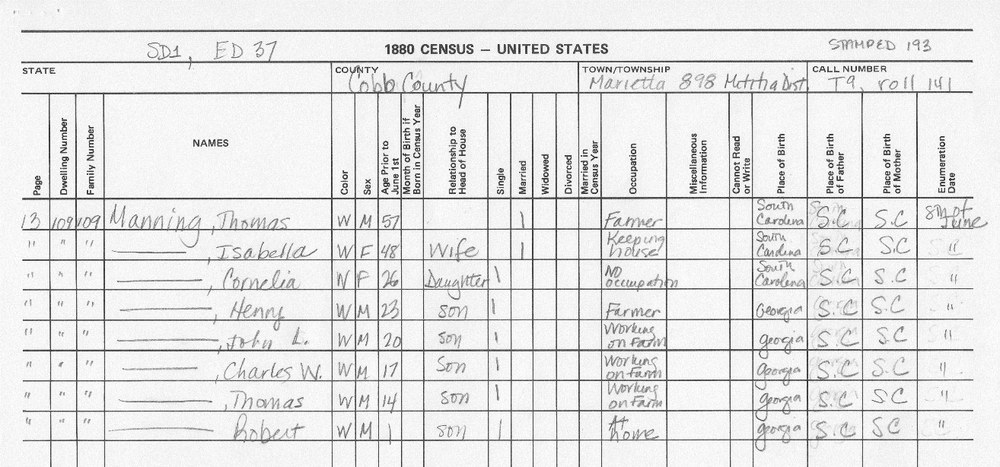 SD1, ED 37 1880 CENSUS – UNITED STATES STAMPED 193
STATE COUNTY TOWN/TOWNSHIP CALL NUMBER
Cobb County Marietta 898 Dist. T9, roll 141
Page Dwelling Number Family Number NAMES Color Sex Age Prior to June 1st Month of Birth if Born in Census Year Relationship to Head of House Single Married Widowed Divorced Married in Census Year Occupation Miscellaneous Information Cannot Read or Write Place of Birth Place of Birth of Father Place of Birth of Mother Enumeration Date
13 109 109 Manning, Thomas W M 57 | Farmer South Carolina S.C S.C 8th of June
" " " ——, Isabella W F 48 Wife | Keeping house South Carolina S.C S.C "
" " " ——, Cornelia W F 26 Daughter | No occupation South Carolina S.C S.C "
" " " ——, Henry W M 23 son | Farmer Georgia S.C S.C "
" " " ——, John L. W M 20 son | Working on Farm georgia S.C S.C "
" " " ——, Charles W. W M 17 Son | Working on Farm Georgia S.C S.C "
" " " ——, Thomas W M 14 son | Working on Farm georgia S.C S.C "
" " " —— Robert W M 1 son | At home georgia S.C SC "